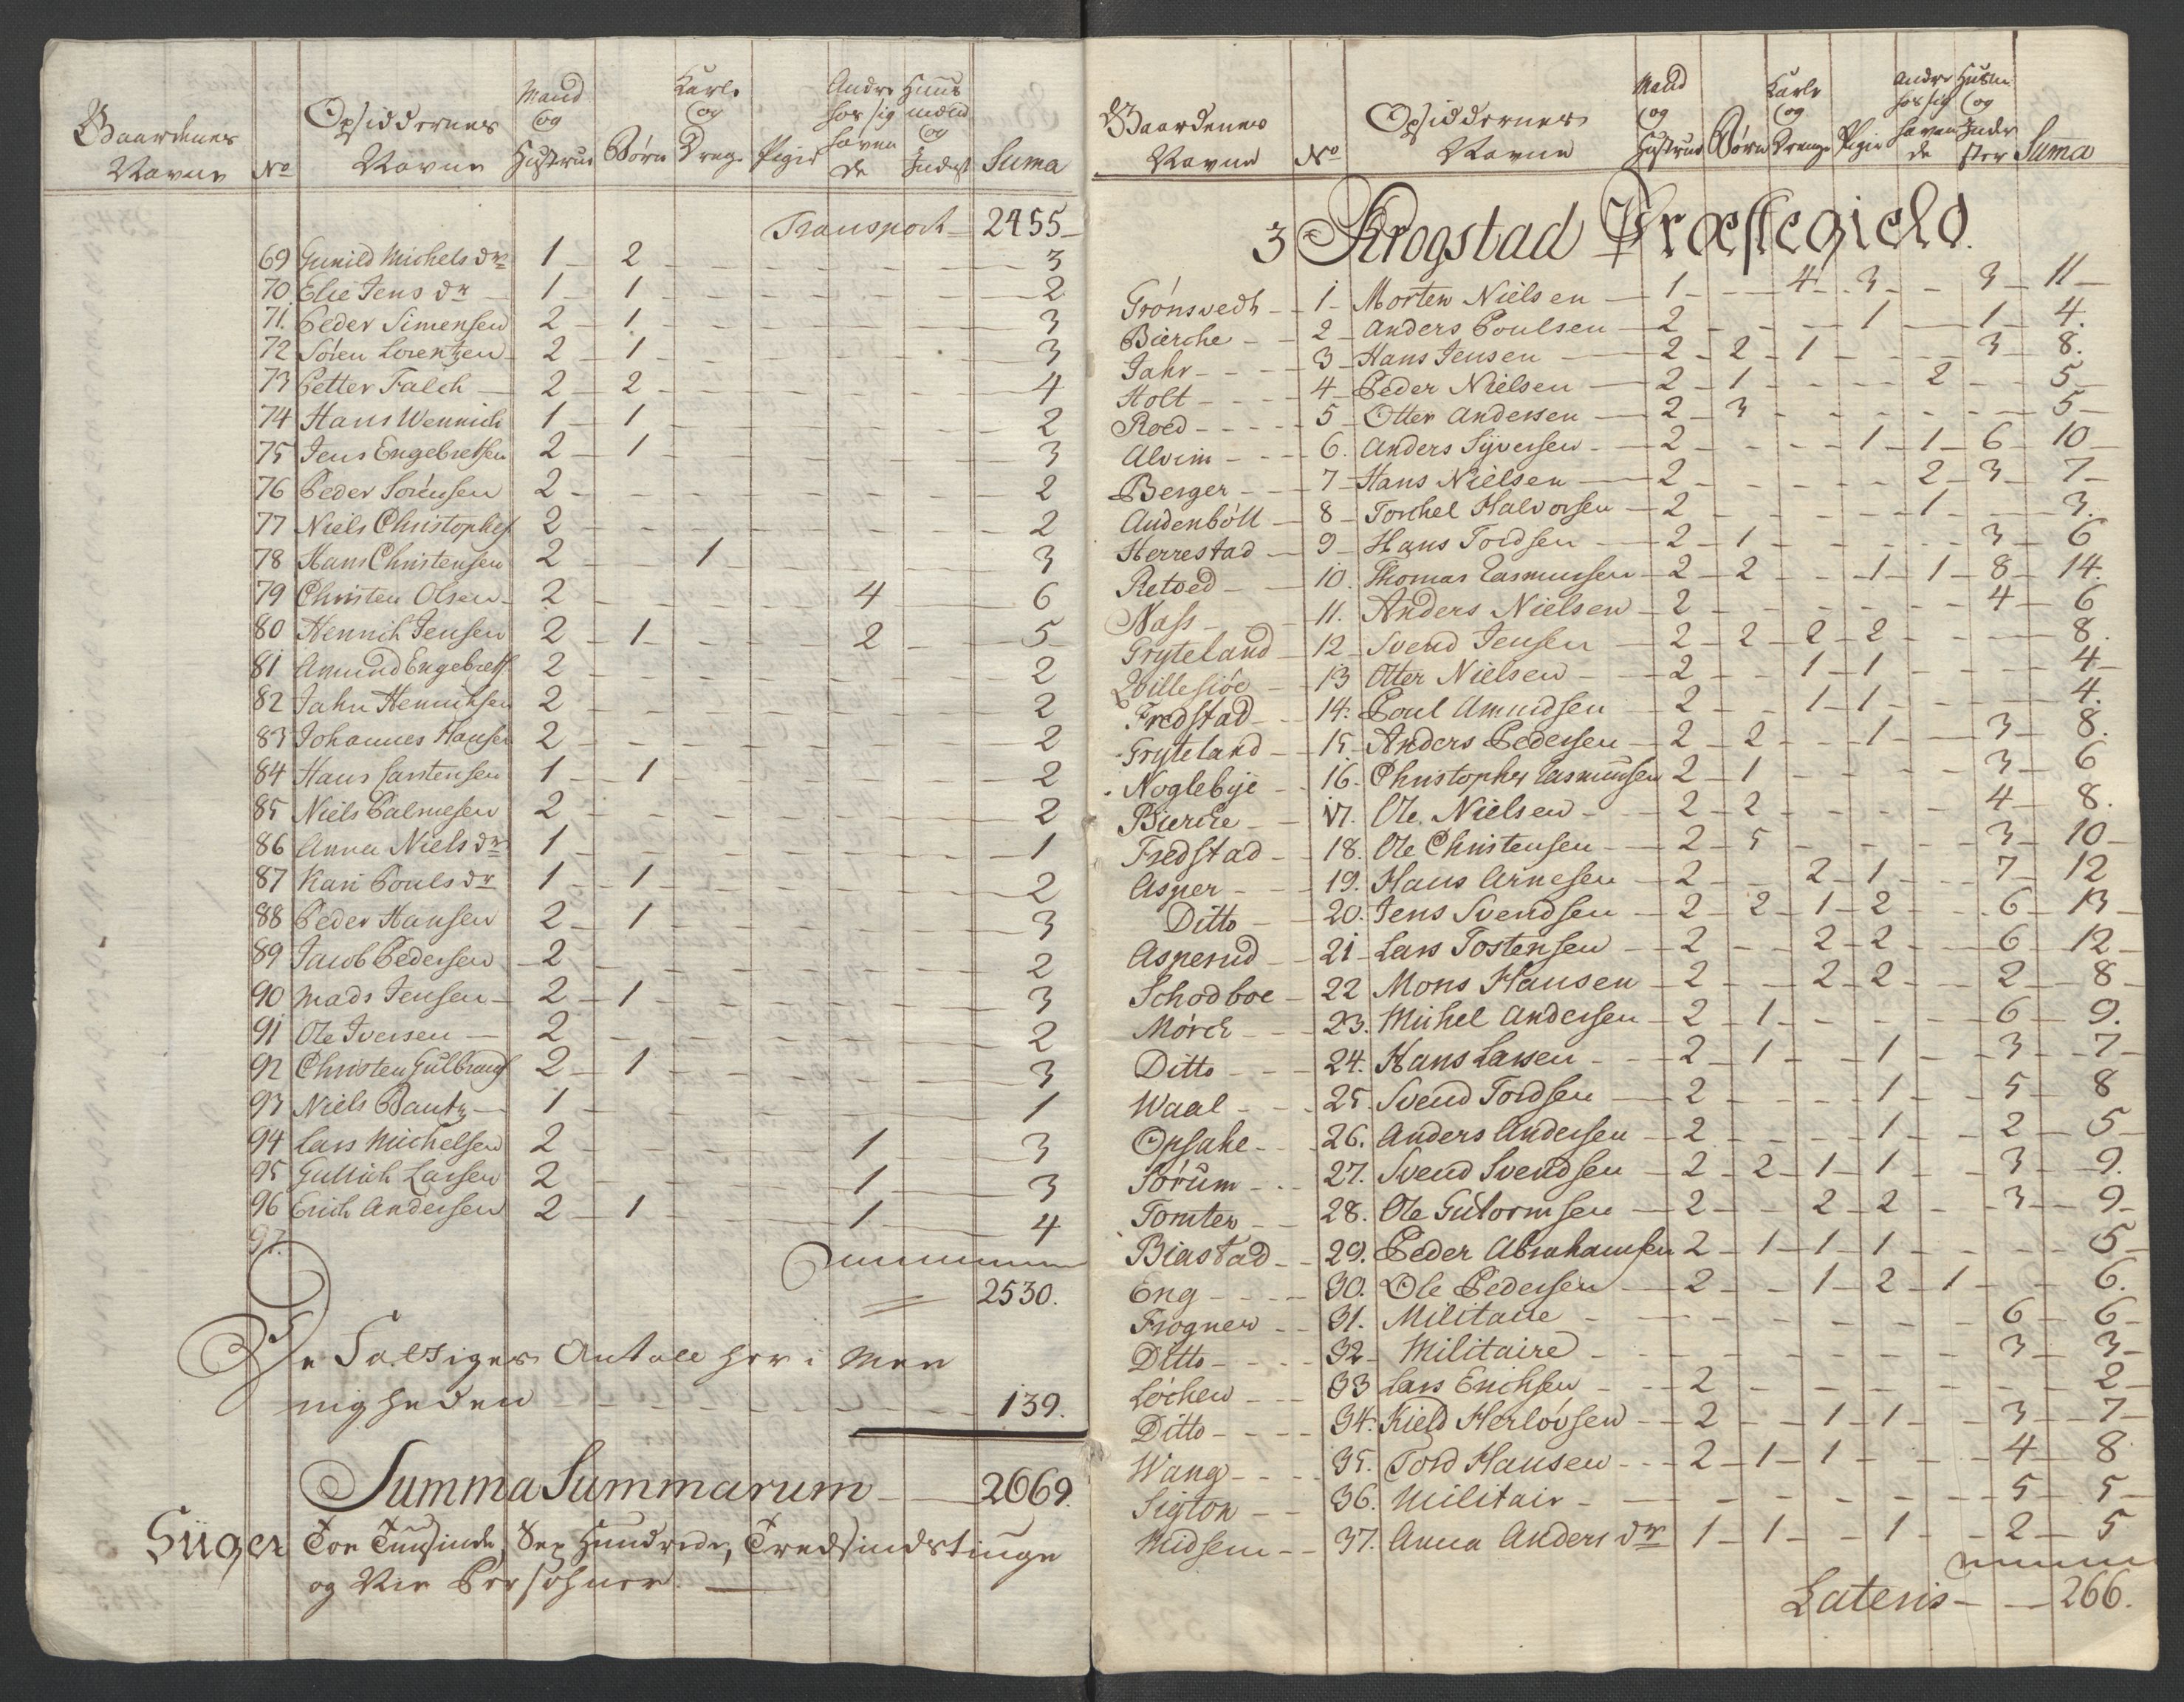 Gaardenes Navne No Opsiddernes Navne Mand og Hustrue Børn Karle og Drenge Piger Andre hos sig haven de Huus mænd og Inderst Suma
Transport 2455
69 Gunild Michels dr 1 2 3
70 Elie Jens dr 1 1 2
71. Peder Simensen 2 1 3
72 Sören Lorentzen 2 1 3
73 Petter Falch 2 2 4
74 Hans Wennich 1 1 2
75 Jens Engebretsen 2 1 3
76 Peder Sörensen 2 2
77 Niels Christophes 2 2
78 Hans Christensen 2 1 3
79 Christen Olsen 2 4 6
80 Hennich Jensen 2 1 2 5
81 Amund Engebrets 2 2
82 Jahn Hennichsen 2 2
83 Johannes Hansen 2 2
84 Hans Carstensen 1 1 2
85 Niels Palmesen 2 2
86 Anna Niels dr 1 1
87 Kari Pouls dr 1 1 2
88 Peder Hansen 2 1 3
89 Jacob Pedersen 2 2
90 Mads Jensen 2 1 3
91 Ole Iversen 2 2
92 Christen Gulbrands 2 1 3
93 Niels Bautz 1 1
94 Lars Michelsen 2 1 3
95 Gullich Larsen 2 1 3
96 Erich Andersen 2 1 1 4
97.
2530.
De Fattiges Antall her i Men
nigheden 139.
Summa Summarum 2669.
Siiger Toe Tuusinde, Sex Hundrede, Tredsindstiuge
og Nie Persohner.
Gaardenes Navne No Opsiddernes Navne Mand og Hustrue Børn Karle og Drenge Piger Andre hos sig haven de Husm og Inder ster Suma
3 Krogstad Præstegield.
Grönsvedt 1 Morten Nielsen 1 4 3 3 11
Bierche 2 Anders Poulsen 2 1 1 4.
Jahr 3 Hans Jensen 2 2 1 3 8.
Holt 4 Peder Nielsen 2 1 2 5
Roed 5 Otter Andersen 2 3 5
Alvim 6. Anders Syversen 2 1 1 6 10
Berger 7 Hans Nielsen 2 2 3 7
Audenböll 8 Torchel Halvorsen 2 1 3.
Herrestad 9 Hans Tordsen 2 1 3 6
Retved 10. Thomas Rasmussen 2 2 1 1 8 14.
Nass 11. Anders Nielsen 2 4 6
Gryteland 12 Svend Jensen 2 2 2 2 8.
Willesiöe 13 Otter Nielsen 2 1 1 4
Fredstad 14. Poul Amundsen 2 1 1 4.
Gryteland 15 Anders Pedersen 2 2 1 3 8.
Noglebye 16. Christopher Rasmussen 2 1 3 6
Bierche 17. Ole Nielsen 2 2 4 8.
Fredstad 18. Ole Christensen 2 5 3 10
Asper 19. Hans Arnesen 2 2 1 7 12
Ditto 20. Jens Svendsen 2 2 1 2 6 13
Asperud 21 Lars Tostensen 2 2 2 6 12
Schodboe 22 Mons Hansen 2 2 2 2 8
Mörch 23. Michel Andersen 2 1 6 9.
Ditto 24. Hans Larsen 2 1 1 3 7
Waal 25. Svend Tordsen 2 1 5 8
Opsahe 26. Anders Andersen 2 1 2 5
Sörum 27. Svend Svendsen 2 2 1 1 3 9.
Tomter 28. Ole Gutormsen 2 2 2 3 9
Biastad 29. Peder Abrahamsen 2 1 1 1 5
Eng 30. Ole Pedersen 2 1 2 1 6.
Frogner 31. Militaire 6 6
Ditto 32 Militaire 3 3
Löchen 33 Lars Erichsen 2 2
Ditto 34. Kield Herlövsen 2 1 1 3 7
Wang 35. Tord Hansen 2 1 1 4 8
Sigton 36. Militair 5 5
Midsem 37. Anna Anders dr 1 1 1 2 5
Lateris 266.